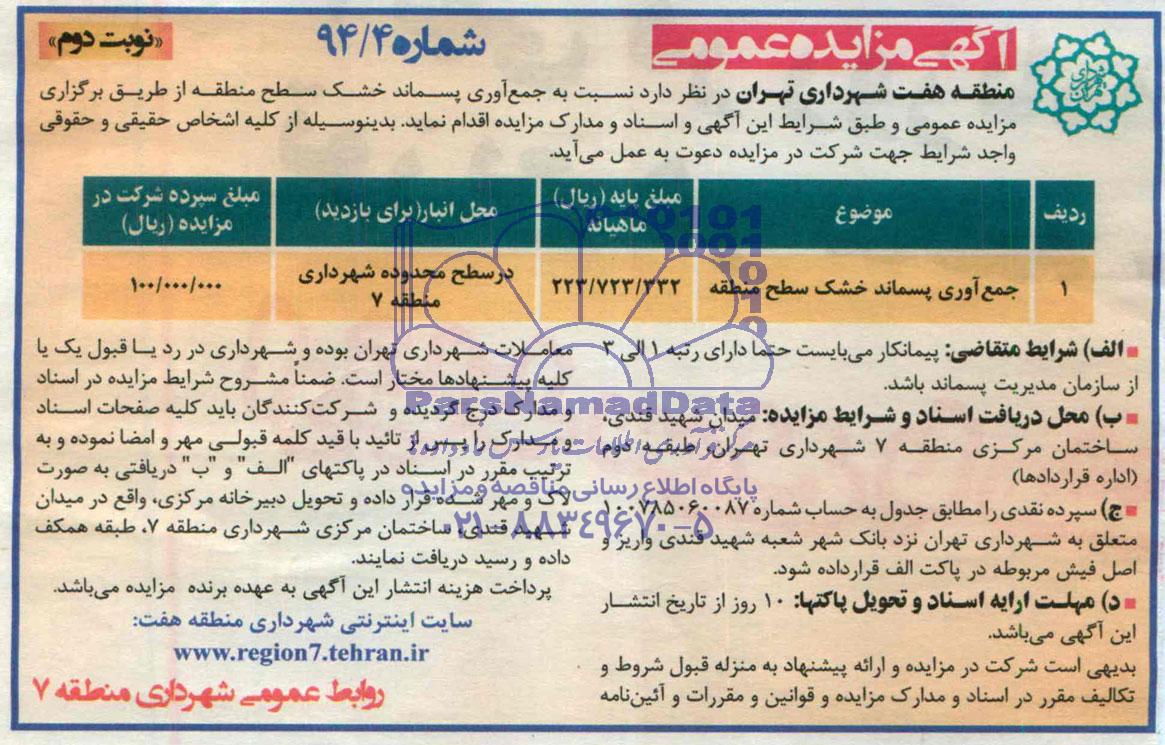 آگهی مزایده عمومی
شماره ۹۴/۴
«نوبت دوم»
منطقه هفت شهرداری تهران در نظر دارد نسبت به جمع‌آوری پسماند خشک سطح منطقه از طریق برگزاری
مزایده عمومی و طبق شرایط این آگهی و اسناد و مدارک مزایده اقدام نماید. بدینوسیله از کلیه اشخاص حقیقی و حقوقی
واجد شرایط جهت شرکت در مزایده دعوت به عمل می‌آید.
ردیف
موضوع
مبلغ پایه (ریال) ماهیانه
محل انبار(برای بازدید)
مبلغ سپرده شرکت در مزایده (ریال)
۱
جمع‌آوری پسماند خشک سطح منطقه
۲۲۳/۷۲۳/۳۳۲
درسطح محدوده شهرداری منطقه ۷
۱۰۰/۰۰۰/۰۰۰
الف) شرایط متقاضی: پیمانکار می‌بایست حتما دارای رتبه ۱ الی ۳
از سازمان مدیریت پسماند باشد.
ب) محل دریافت اسناد و شرایط مزایده: میدان شهید قندی،
ساختمان مرکزی منطقه ۷ شهرداری تهران، طبقه دوم
(اداره قراردادها)
ج) سپرده نقدی را مطابق جدول به حساب شماره ۱۰۰۷۸۵۰۶۰۰۸۷
متعلق به شهرداری تهران نزد بانک شهر شعبه شهید قندی واریز و
اصل فیش مربوطه در پاکت الف قرارداده شود.
د) مهلت ارایه اسناد و تحویل پاکتها: ۱۰ روز از تاریخ انتشار
این آگهی می‌باشد.
بدیهی است شرکت در مزایده و ارائه پیشنهاد به منزله قبول شروط و
تکالیف مقرر در اسناد و مدارک مزایده و قوانین و مقررات و آئین‌نامه
معاملات شهرداری تهران بوده و شهرداری در رد یا قبول یک یا
کلیه پیشنهادها مختار است. ضمناً مشروح شرایط مزایده در اسناد
و مدارک درج گردیده و شرکت‌کنندگان باید کلیه صفحات اسناد
و مدارک را پس از تائید با قید کلمه قبولی مهر و امضا نموده و به
ترتیب مقرر در اسناد در پاکتهای "الف" و "ب" دریافتی به صورت
لاک و مهر شده قرار داده و تحویل دبیرخانه مرکزی، واقع در میدان
شهید قندی، ساختمان مرکزی شهرداری منطقه ۷، طبقه همکف
داده و رسید دریافت نمایند.
پرداخت هزینه انتشار این آگهی به عهده برنده مزایده می‌باشد.
سایت اینترنتی شهرداری منطقه هفت:
www.region7.tehran.ir
روابط عمومی شهرداری منطقه ۷
ParsNamadData
پایگاه اطلاع رسانی مناقصه و مزایده
۰۲۱-۸۸۳۴۹۶۷۰-۵